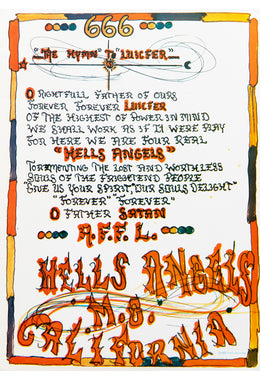 666
"THE HYMN TO LUICFER"
O RIGHTFULL FATHER OF OURS
FOREVER FOREVER LUICFER
OF THE HIGHEST OF POWER IN MIND
WE SHALL WORK AS IF IT WERE PLAY
FOR HERE WE ARE YOUR REAL
"HELLS ANGELS"
TOREMENTING THE LOST AND WORTHLESS
SOULS OF THE FRIGHTEND PEOPLE
"GIVE US YOUR SPIRIT, OUR SOULS DELIGHT"
"FOREVER" "FOREVER"
O FATHER SATAN
A.F.F.L.
HELLS ANGELS
M.C.
CALIFORNIA